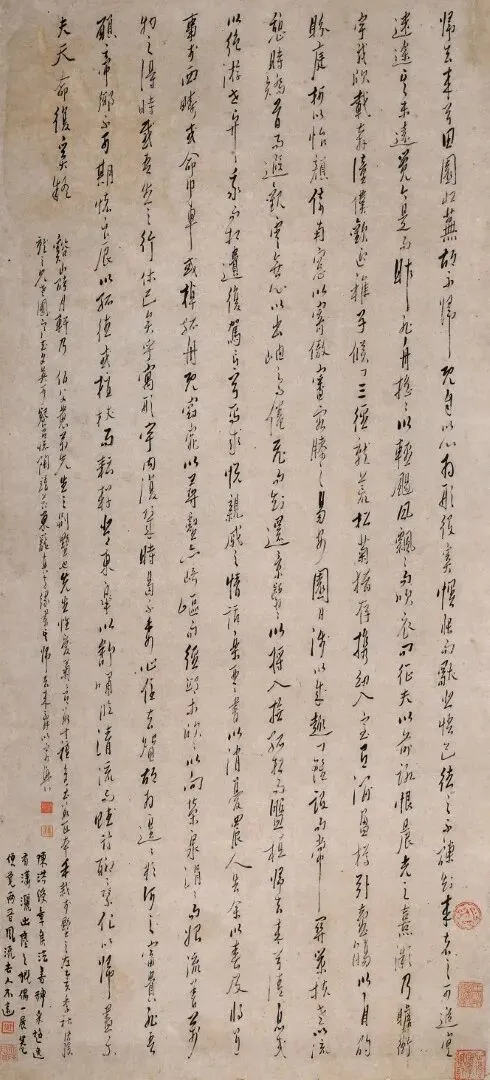 歸去來兮田園將蕪胡不歸既自以心為形役奚惆悵而獨悲悟已往之不諫知來者之可追實
迷途其未遠覺今是而昨非舟搖搖以輕颺風飄飄而吹衣問征夫以前路恨晨光之熹微乃瞻衡
宇載欣載奔僮僕歡迎稚子候門三徑就荒松菊猶存攜幼入室有酒盈樽引壺觴以自酌
眄庭柯以怡顏倚南窗以寄傲審容膝之易安園日涉以成趣門雖設而常關策扶老以流
憩時矯首而遐觀雲無心以出岫鳥倦飛而知還景翳翳以將入撫孤松而盤桓歸去來兮請息交
以絕游世與我而相遺復駕言兮焉求悅親戚之情話樂琴書以消憂農人告余以春及將有
事于西疇或命巾車或棹孤舟既窈窕以尋壑亦崎嶇而經邱木欣欣以向榮泉涓涓而始流善萬
物之得時感吾生之行休已矣乎寓形宇內復幾時曷不委心任去留胡為遑遑欲何之富貴非吾
願帝鄉不可期懷良辰以孤往或植杖而耘耔登東皋以舒嘯臨清流而賦詩聊乘化以歸盡樂
夫天命復奚疑
谿山醉月軒乃伯父先生之別墅也先生性愛菊
歸去來辭以
陳洪綬章侯法書神采超逸
有瀟灑出塵之概偶一展卷
便覺兩晉風流去人不遠